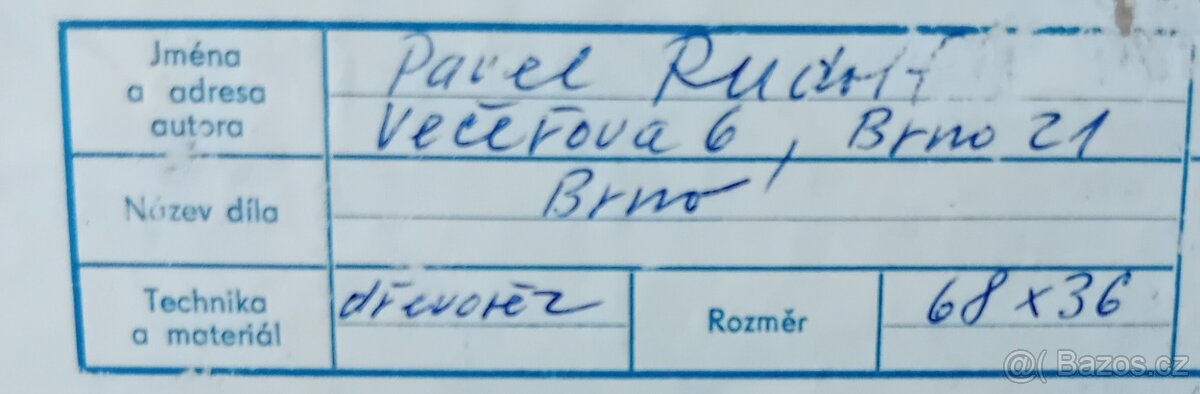 Jména
a adresa
autora
Pavel Rudolf
Večeřova 6, Brno 21
Název díla
Brno
Technika
a materiál
dřevořez
Rozměr
68 x 36
@( Bazos.cz